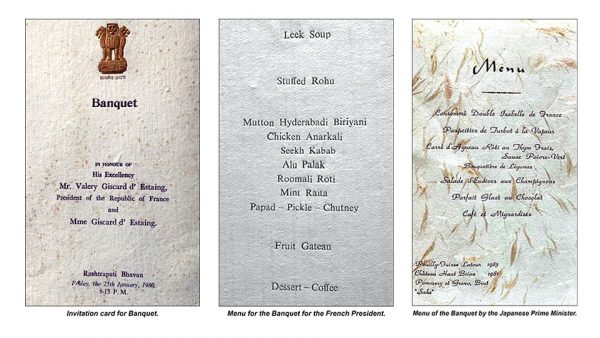 सत्यमेव जयते
Banquet
IN HONOUR OF
His Excellency
Mr. Valery Giscard d' Estaing,
President of the Republic of France
and
Mme Giscard d' Estaing.
Rashtrapati Bhavan
Friday, the 25th January, 1980.
8-15 P.M.
Invitation card for Banquet.
Leek Soup
Stuffed Rohu
Mutton Hyderabadi Biriyani
Chicken Anarkali
Seekh Kabab
Alu Palak
Roomali Roti
Mint Raita
Papad – Pickle – Chutney
Fruit Gateau
Dessert – Coffee
Menu for the Banquet for the French President.
Menu
Consommé Double Isabelle de France
Paupiettes de Turbot à la Vapeur
Carré d'Agneau Rôti au Thym Frais,
Sauce Poivre-Vert
Bouquetière de Légumes
Salade d'Endives aux Champignons
Parfait Glacé au Chocolat
Café et Mignardises
Pouilly-Fuisse Latour
Château Haut Brion
Pommery et Greno, Brut
"Sake"
Menu of the Banquet by the Japanese Prime Minister.